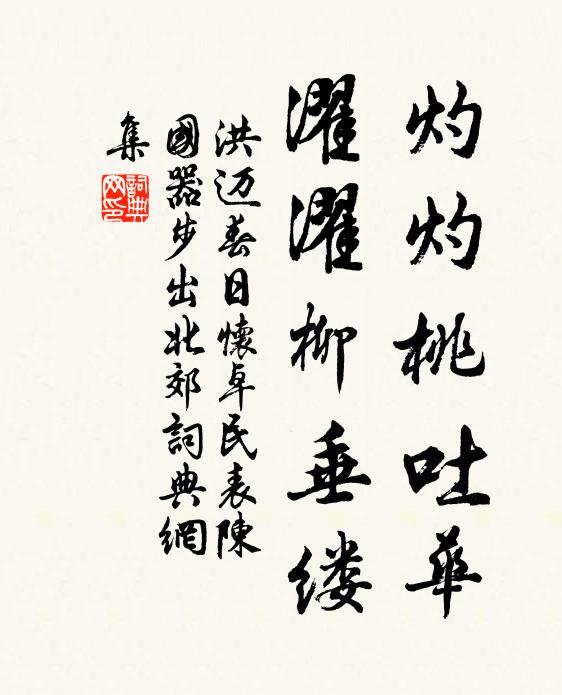 灼灼桃吐華
濯濯柳垂缕
洪迈春日懷卓民表陳
國器步出北郊詞典網
集
詞典
网印